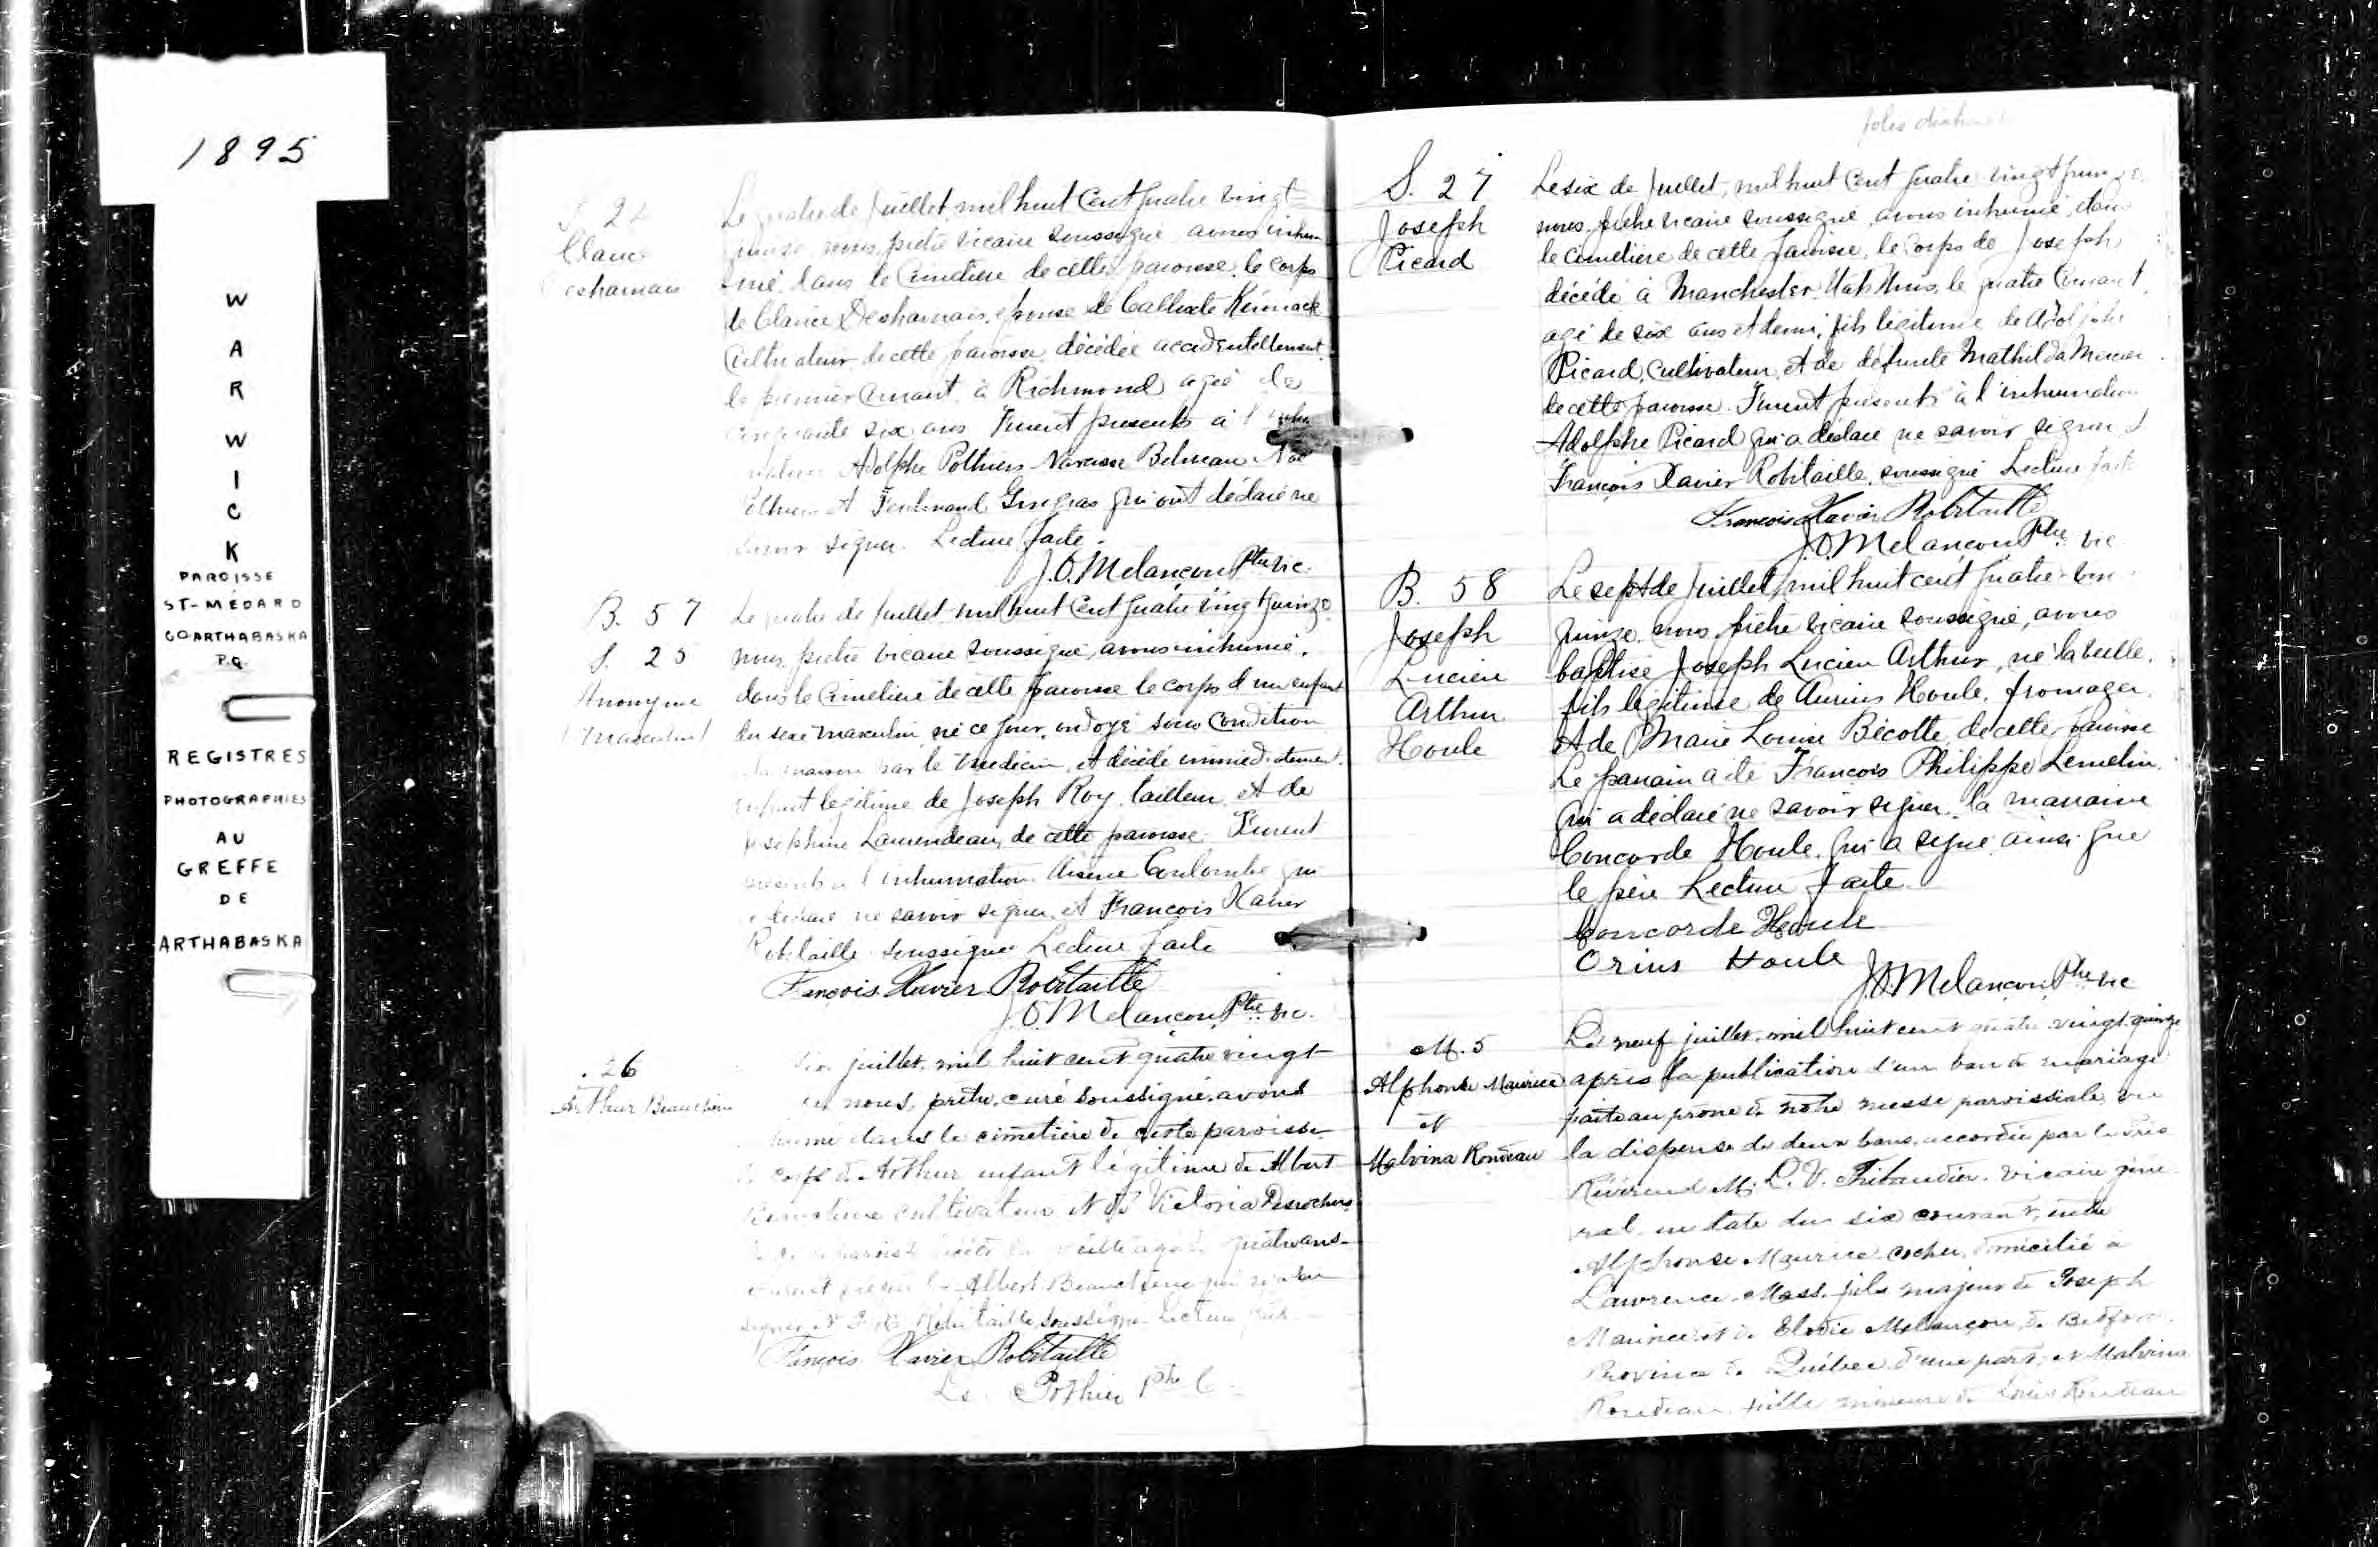 1895
WARWICK
PAROISSE
ST-MÉDARD
CO ARTHABASKA
P.Q.
REGISTRES
PHOTOGRAPHIES
AU
GREFFE
DE
ARTHABASKA
Le quatre de Juillet, mil huit Cent quatre vingt
nous, prêtre vicaire soussigné avons inhu
mé, dans le Cimetière de cette paroisse, le corps
de Clarice Desharnais, épouse de Callixte Kérouack
Cultivateur de cette paroisse, décédée accidentellement
le premier Courant, à Richmond agée de
cinquante six ans Furent presents à l'
Adolphe Pothier, Narcisse Noé
Pothier et Ferdinand Gingras qui ont déclaré ne
savoir signer. Lecture faite.
J.O. Melançon Ptre vic.
B. 57
S. 25
Anonyme
masculin
Le quatre de Juillet mil huit Cent quatre vingt quinze
nous, prêtre vicaire soussigné, avons inhumé,
dans le Cimetière de cette paroisse le corps d'un enfant
du sexe masculin né ce jour, ondoyé sous Condition
à la maison par le médecin, et décédé immédiatement
enfant légitime de Joseph Roy, tailleur, et de
Josephine Laurendeau, de cette paroisse. Furent
presents à l'inhumation Coulombe qui
a déclaré ne savoir signer, et François Xavier
Robitaille soussigné Lecture faite
François Xavier Robitaille
J.O. Melançon Ptre vic.
26
Arthur
juillet, mil huit cent quatre vingt
nous, prêtre, curé soussigné, avons
inhumé dans le cimetière de cette paroisse
le corps de Arthur enfant légitime de Albert
cultivateur et de Victoria Desrochers
de cette paroisse décédé la veille agé de quatre ans
Furent présents Albert qui
signer, et Robitaille, soussigné. Lecture faite
François Xavier Robitaille
Ls. Pothier Ptre C
S. 27
Joseph
Picard
Le six de Juillet, mil huit Cent quatre vingt quinze
nous, prêtre vicaire soussigné, avons inhumé, dans
le cimetière de cette paroisse, le corps de Joseph
décédé à Manchester, le quatre Courant,
agé de six ans et demi, fils légitime de Adolphe
Picard, Cultivateur, et de défunte Mathilda Mercier
de cette paroisse. Furent présents à l'inhumation
Adolphe Picard qui a déclaré ne savoir signer et
François Xavier Robitaille, soussigné Lecture faite
François Xavier Robitaille
J.O. Melançon Ptre vic
B. 58
Joseph
Lucien
Arthur
Houle
Le sept de Juillet, mil huit cent quatre-vin
quinze, nous, prêtre vicaire soussigné, avons
baptisé Joseph Lucien Arthur, né la veille,
fils légitime de Houle, fromager,
et de Marie Louise Bécotte, de cette paroisse
Le parrain a été François Philippe Lemelin
qui a déclaré ne savoir signer, la marraine
Concorde Houle, qui a signé ainsi que
le père Lecture faite
Concorde Houle
Orius Houle
J.O. Melançon Ptre vic
M. 5
Alphonse Maurice
et
Malvina Rondeau
Le neuf juillet, mil huit cent quatre-vingt-quinze
après la publication d'un ban de mariage
faite au prône de notre messe paroissiale, vu
la dispense de deux bans, accordée par le Très
Révérend M. Thibaudier, vicaire géné
ral en date du six courant, entre
Alphonse Maurice, cocher, domicilié à
Lawrence, Mass. fils majeur de Joseph
Maurice et de Elodie Melançon, de Bedford
Province de Québec d'une part, et Malvina
Rondeau, fille mineure de Louis Rondeau